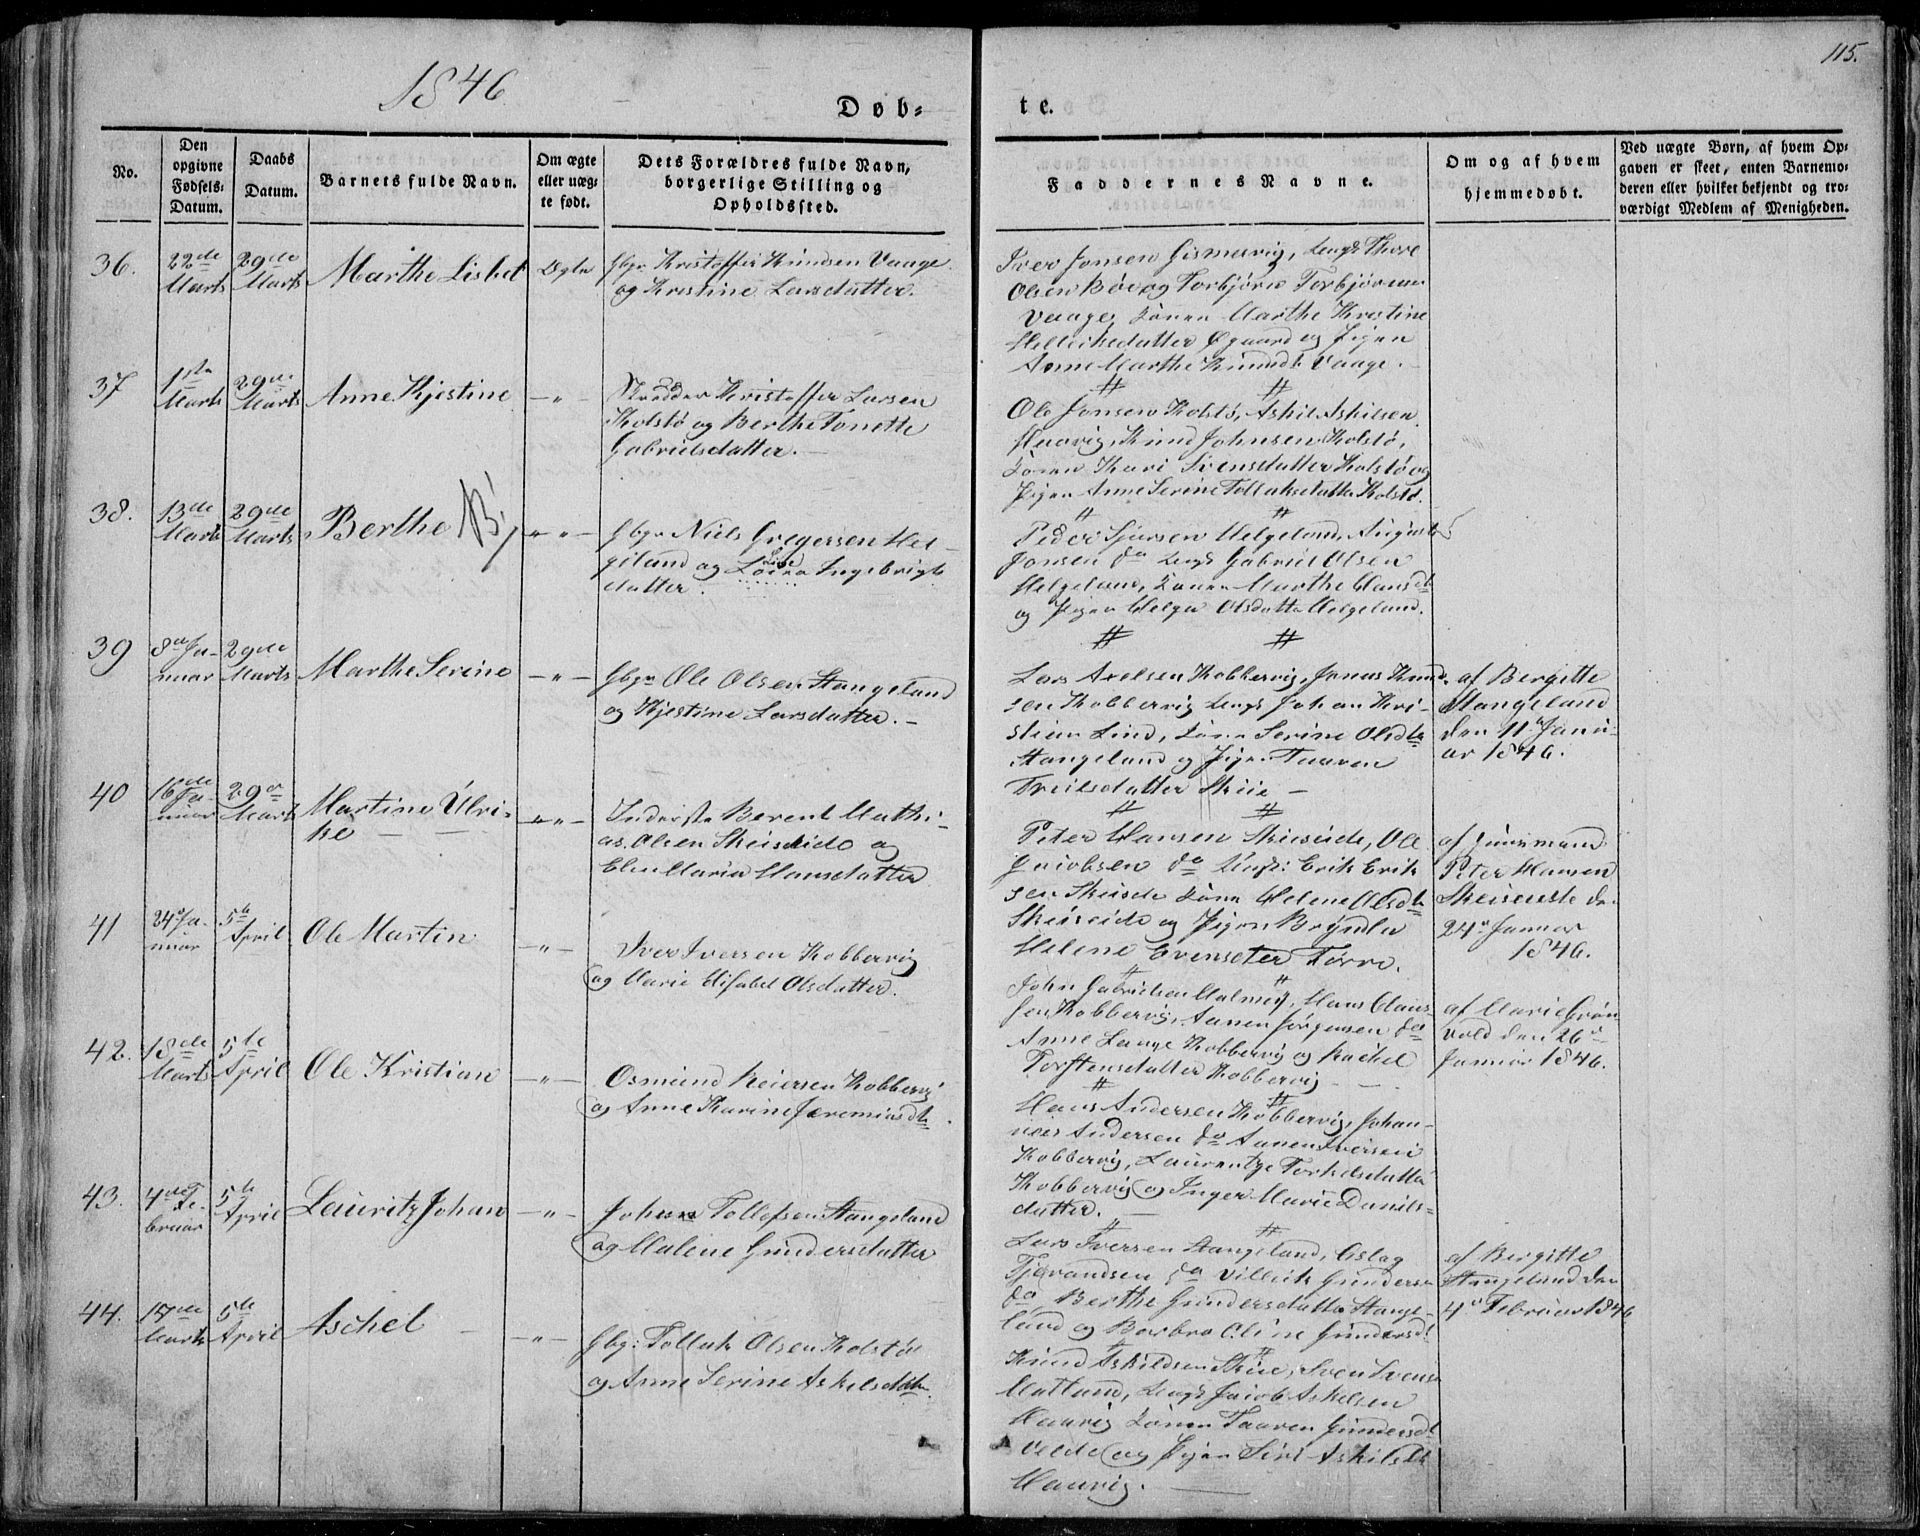 115.
1846
Døb-
te.
No.
Den opgivne Fødsels-Datum.
Daabs Datum.
Barnets fulde Navn.
Om ægte eller uægte født.
Dets Forældres fulde Navn, borgerlige Stilling og Opholdssted.
Faddernes Navne.
Om og af hvem hjemmedøbt.
Ved uægte Børn, af hvem Opgaven er skeet, enten Barnemoderen eller hvilket bekjendt og troværdigt Medlem af Menigheden.
36.
22de Marts
29de Marts
Marthe Lisbet
Ægte
Gbr Kristoffer Knudsen Vaage
og Kristine Larsdatter.
Iver Jonsen Gismervig, Ungk Thore
Olsen Bøe og Torbjørn Torbjørnsen
Vaage, Konen Marthe Kristine
Helleiksdatter Øgaard og Pigen
Anne Marthe Knudsdt Vaage.
37
1ste Marts
29de Marts
Anne Kjestine
— " —
Skrædder Kristoffer Larsen
Kolstø og Berthe Tonette
Gabrielsdatter. —
Ole Jonsen Kolstø, Askil Askilsen
Haavig, Knud Johnsen Kolstø,
Konen Kari Svensdatter Kolstø og
Pigen Anne Serine Tollaksdatter Kolstø.
38.
13de Marts
29de Marts
Berthe
" " —
Gbgr Niels Gregersen Hel-
geland og Ingebrigts
datter.
Peder Sjursen Helgeland, August
Jonsen do Ungk Gabriel Olsen
Helgeland, Konen Marthe Hansdt
og Pigen Helga Olsdatter Helgeland.
39
8de Ja-
nuar
29de Marts
Marthe Serine
— " —
Gbgr Ole Olsen Stangeland
og Kjestine Larsdatter. —
Lars Axelsen Kobbervig, Jonas Knud-
sen Kobbervig Ungk Johan Kri-
stian Lind, Konen Serine Olsdtr
Stangeland og Pigen Taaren
Troilsdatter Skeie —
af Bergitte
Stangeland
den 11te Janu-
ar 1846.
40
16de Ja-
nuar
29de Marts
Martine Ulri-
ke — —
" " —
Inderste Berent Mathi-
as Olsen Skeiseide og
Elen Maria Hansdatter
Peter Hansen Skeiseide, Ole
Jacobsen do Ungk: Erik Erik
sen Skeiseide Konen Helene Olsdtr
Skeiseide og Pigen
Helene Evensdter Førre.
af Huusmand
Peter Hansen
den
24de Januar
1846.
41
24de Ja-
nuar
5te April
Ole Martin
— " —
Iver Iversen Kobbervig
og Marie Elisabet Olsdatter.
John Gabrielsen Malmei, Hans Claus-
sen Kobbervig, Aanen Jørgensen do
Anne Lange Kobbervig og Rachel
Torstensdatter Kobbervig —
af Marie Grøn-
vold den 26de
Januar 1846.
42.
18de Marts
5te April
Ole Kristian
— " —
Osmund Reiersen Kobbervig
og Anne Karine Jeremiasdtr.
Hans Andersen Kobbervig, Johan-
nes Andersen do Aanen Iversen
Kobbervig, Laurentze Torkelsdatter
Kobbervig og Inger Marie Daniels-
datter. —
43.
4de Fe-
bruar
5te April
Lauritz Johan
— " —
Johan Tollefsen Stangeland
og Malene Gundersdatter
Lars Iversen Stangeland, Oslag
Tjerandsen do Villeik Gundersen
do Berthe Gundersdatter Stange-
land og Barbro Oline Gundersdt
af Bergitte
Stangeland den
4de Februar 1846
44.
17de Marts
5te April
Aschel —
— " —
Gbgr: Tollak Olsen Kolstø
og Anne Serine Askelsdatter.
Knud Askildsen Skeie, Sven Svens
Matland, Ungk Jacob Askelsen
Haavig Konen Taaren Gundersdt
Velde og Pigen Siri Askilsdt
Haavig. —